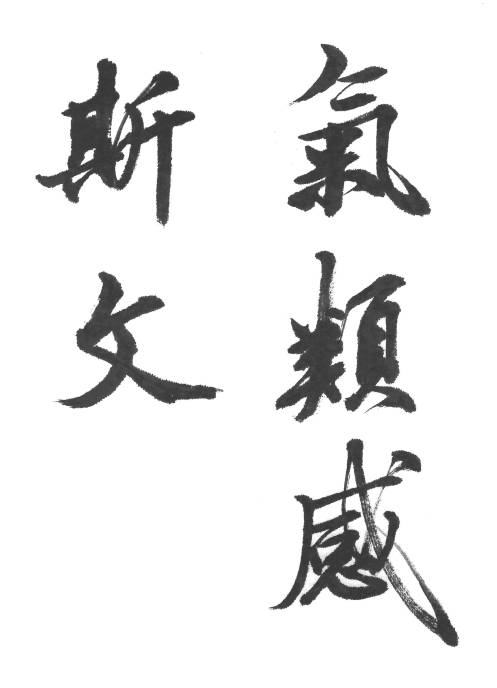 氣類感
斯文